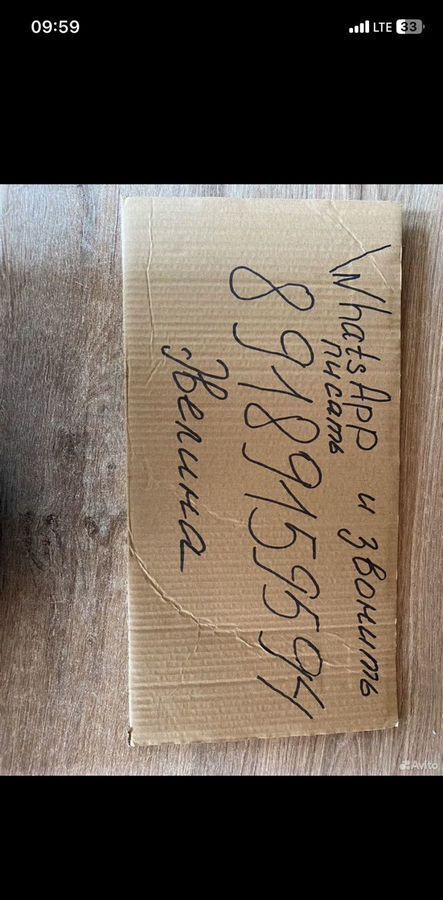 09:59
LTE 33
WhatsApp и звонить
писать
89189159594
Эвелина
Avito